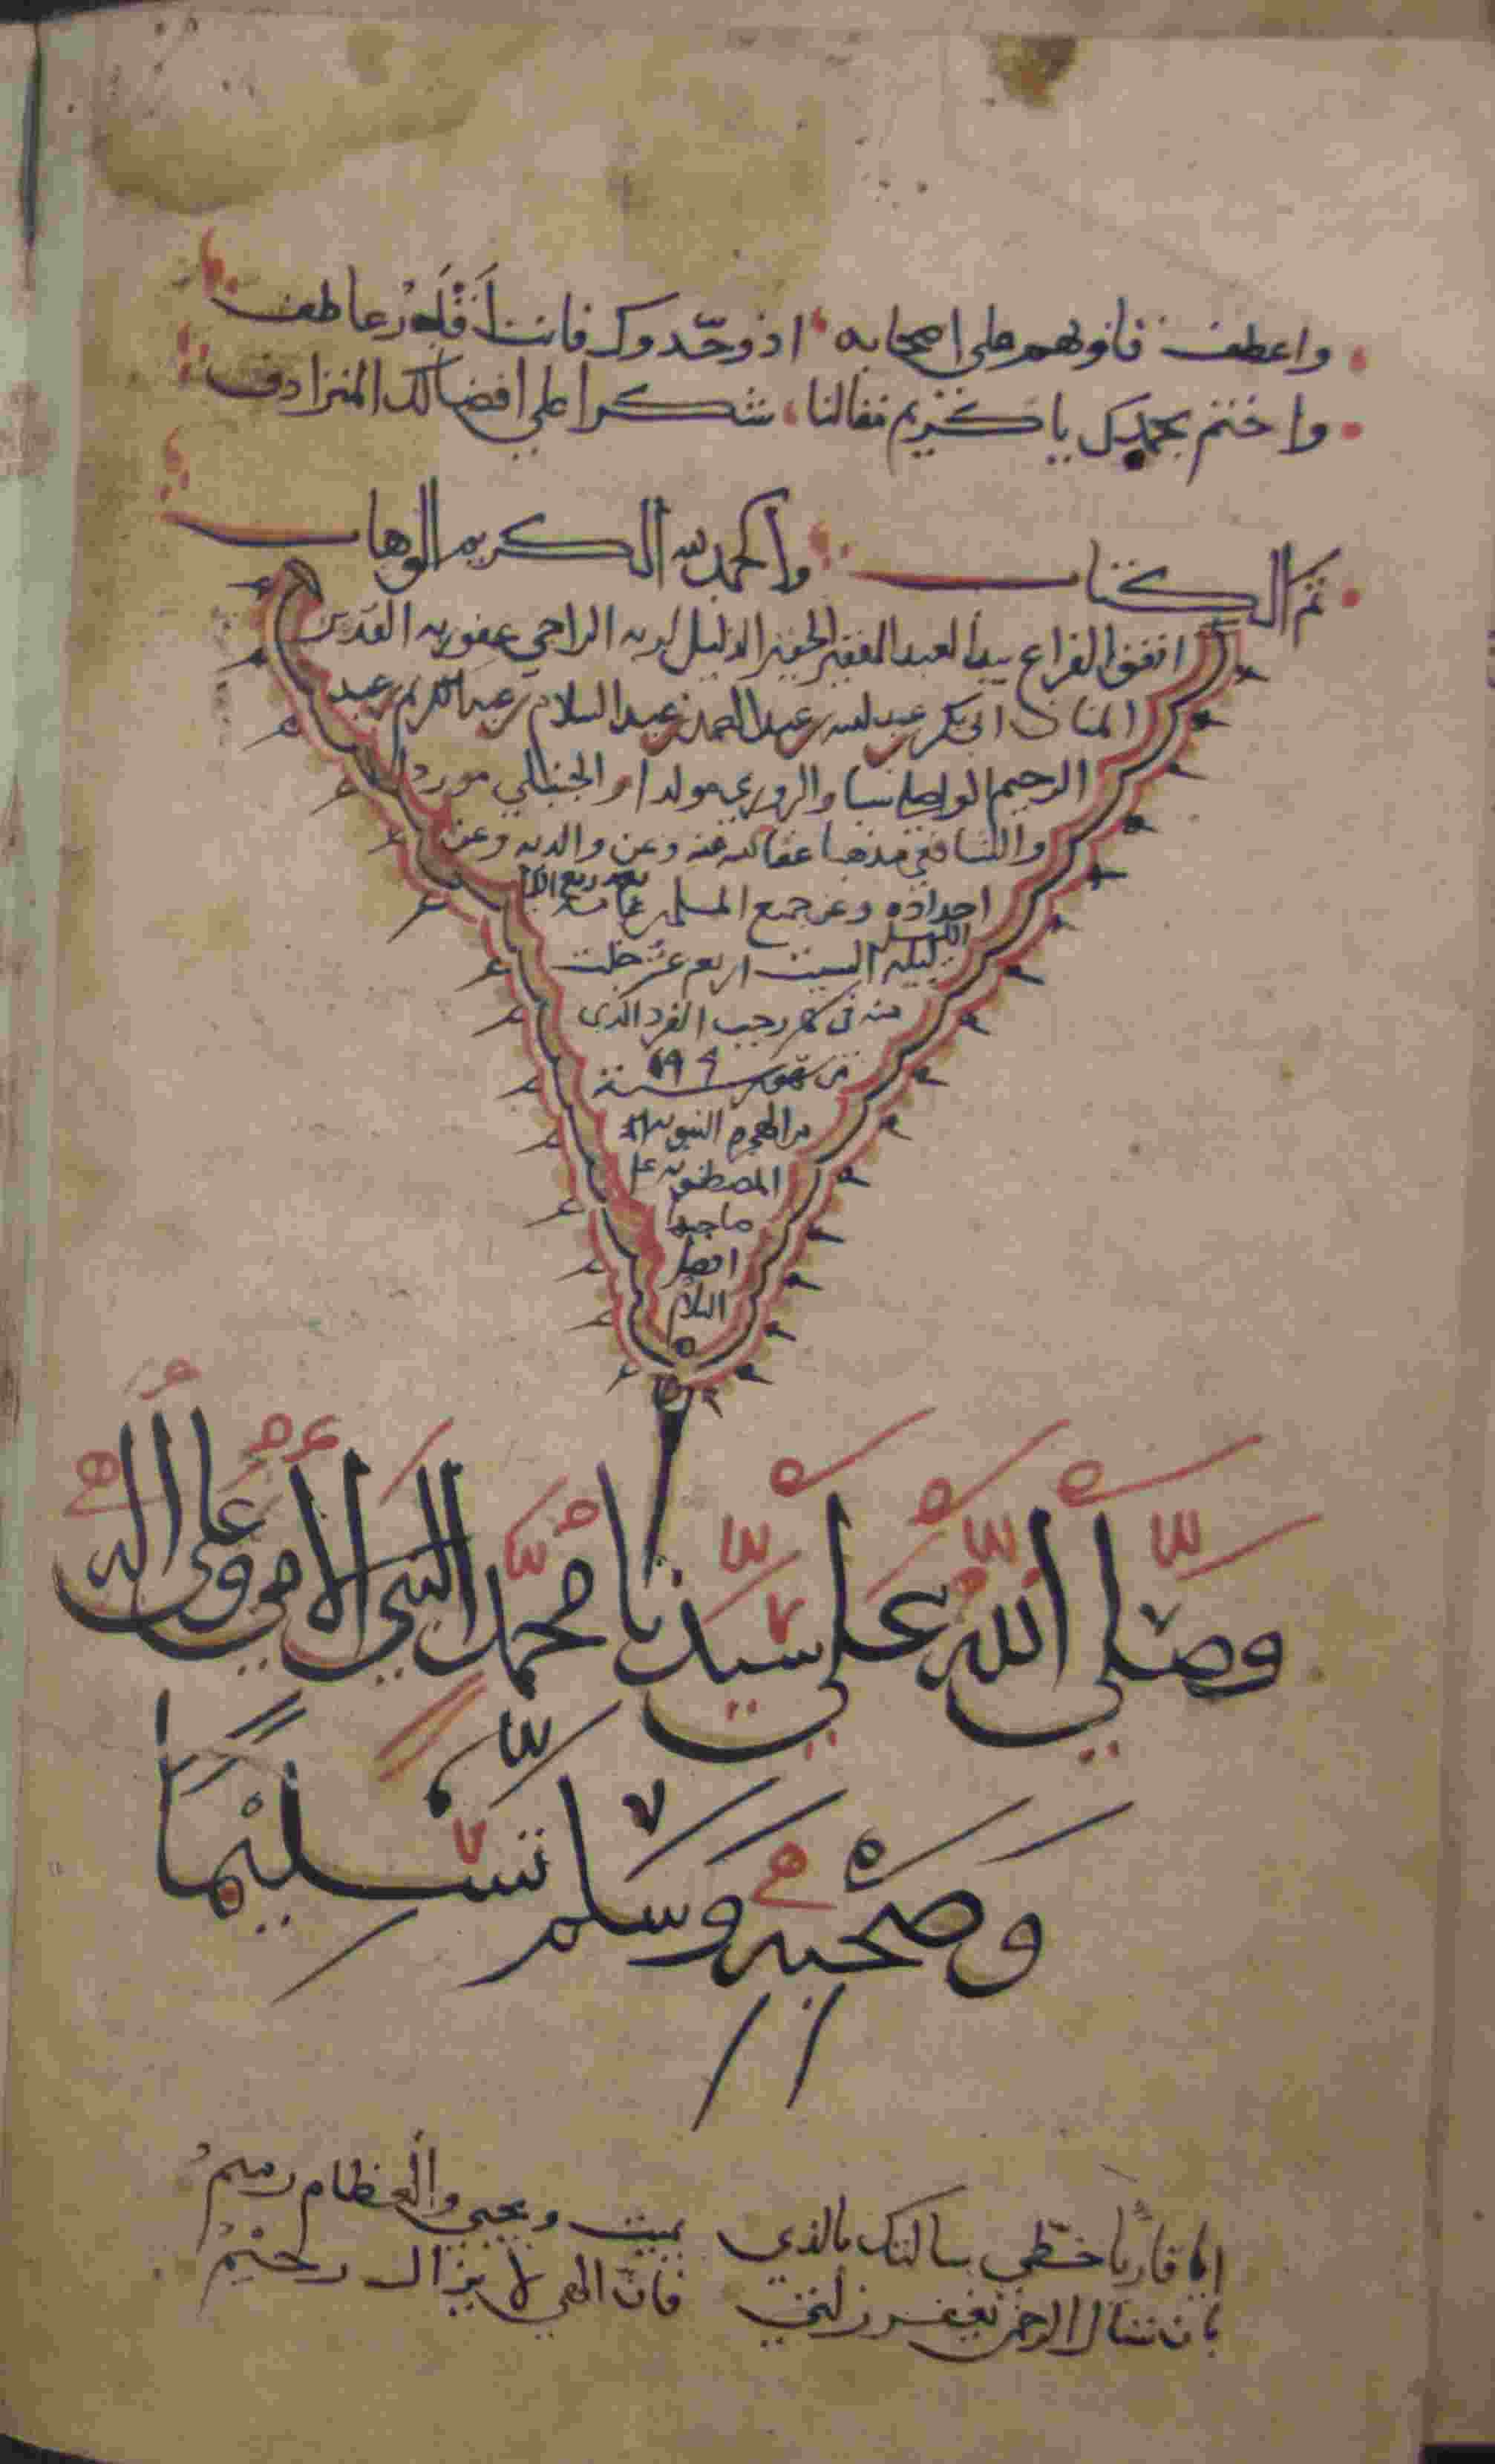 واعطف فانولهم على اصحابه اذ وحّدوك فانت عاطف
واختم بحمدك يا كريم مقالنا شكرا على افضالك المترادف
تم الكتاب والحمد لله الكريم الوهاب
اتفق الفراغ بيد العبد الفقير الحقير الذليل لربه الراجي عفو ربه القدير
المنان ابي بكر عبد الله بن عبد الصمد بن عبد السلام بن عبد الكريم بن عبد
الرحيم نسبا مولدا
والشافعي مذهبا عفا الله عنه وعن والديه وعن
اجداده وعن جميع المسلمين
ليلة السبت اربع عشر خلت
منه في شهر رجب الفرد الذي
من شهور سنة
النبوية
المصطفوية على
صاحبها
افضل
السلام
وصلى الله على سيدنا محمد النبي الامي وعلى اله
وصحبه وسلم تسليما
ايا قاريا خطّي سالتك بالذي يميت ويحيي والعظام رميم
بان تسال الرحمن يغفر زلتي فان الهي لا يزال رحيم